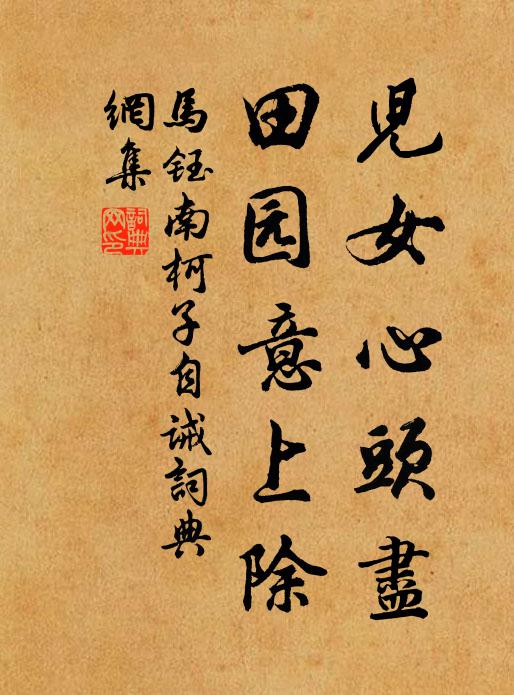 兒女心頭盡
田园意上除
馬鈺南柯子自誡詞典
網集
詞典网印